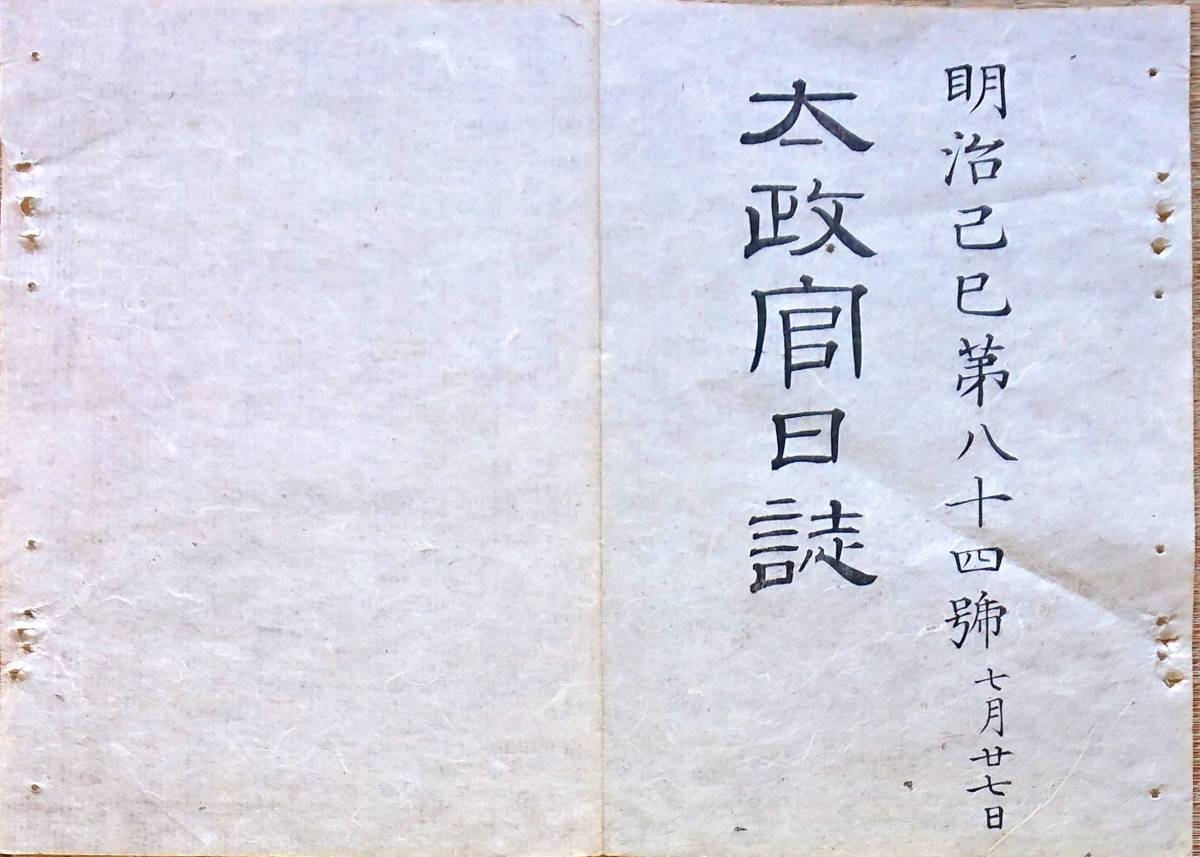 明治己巳第八十四號 七月廿七日
太政官日誌